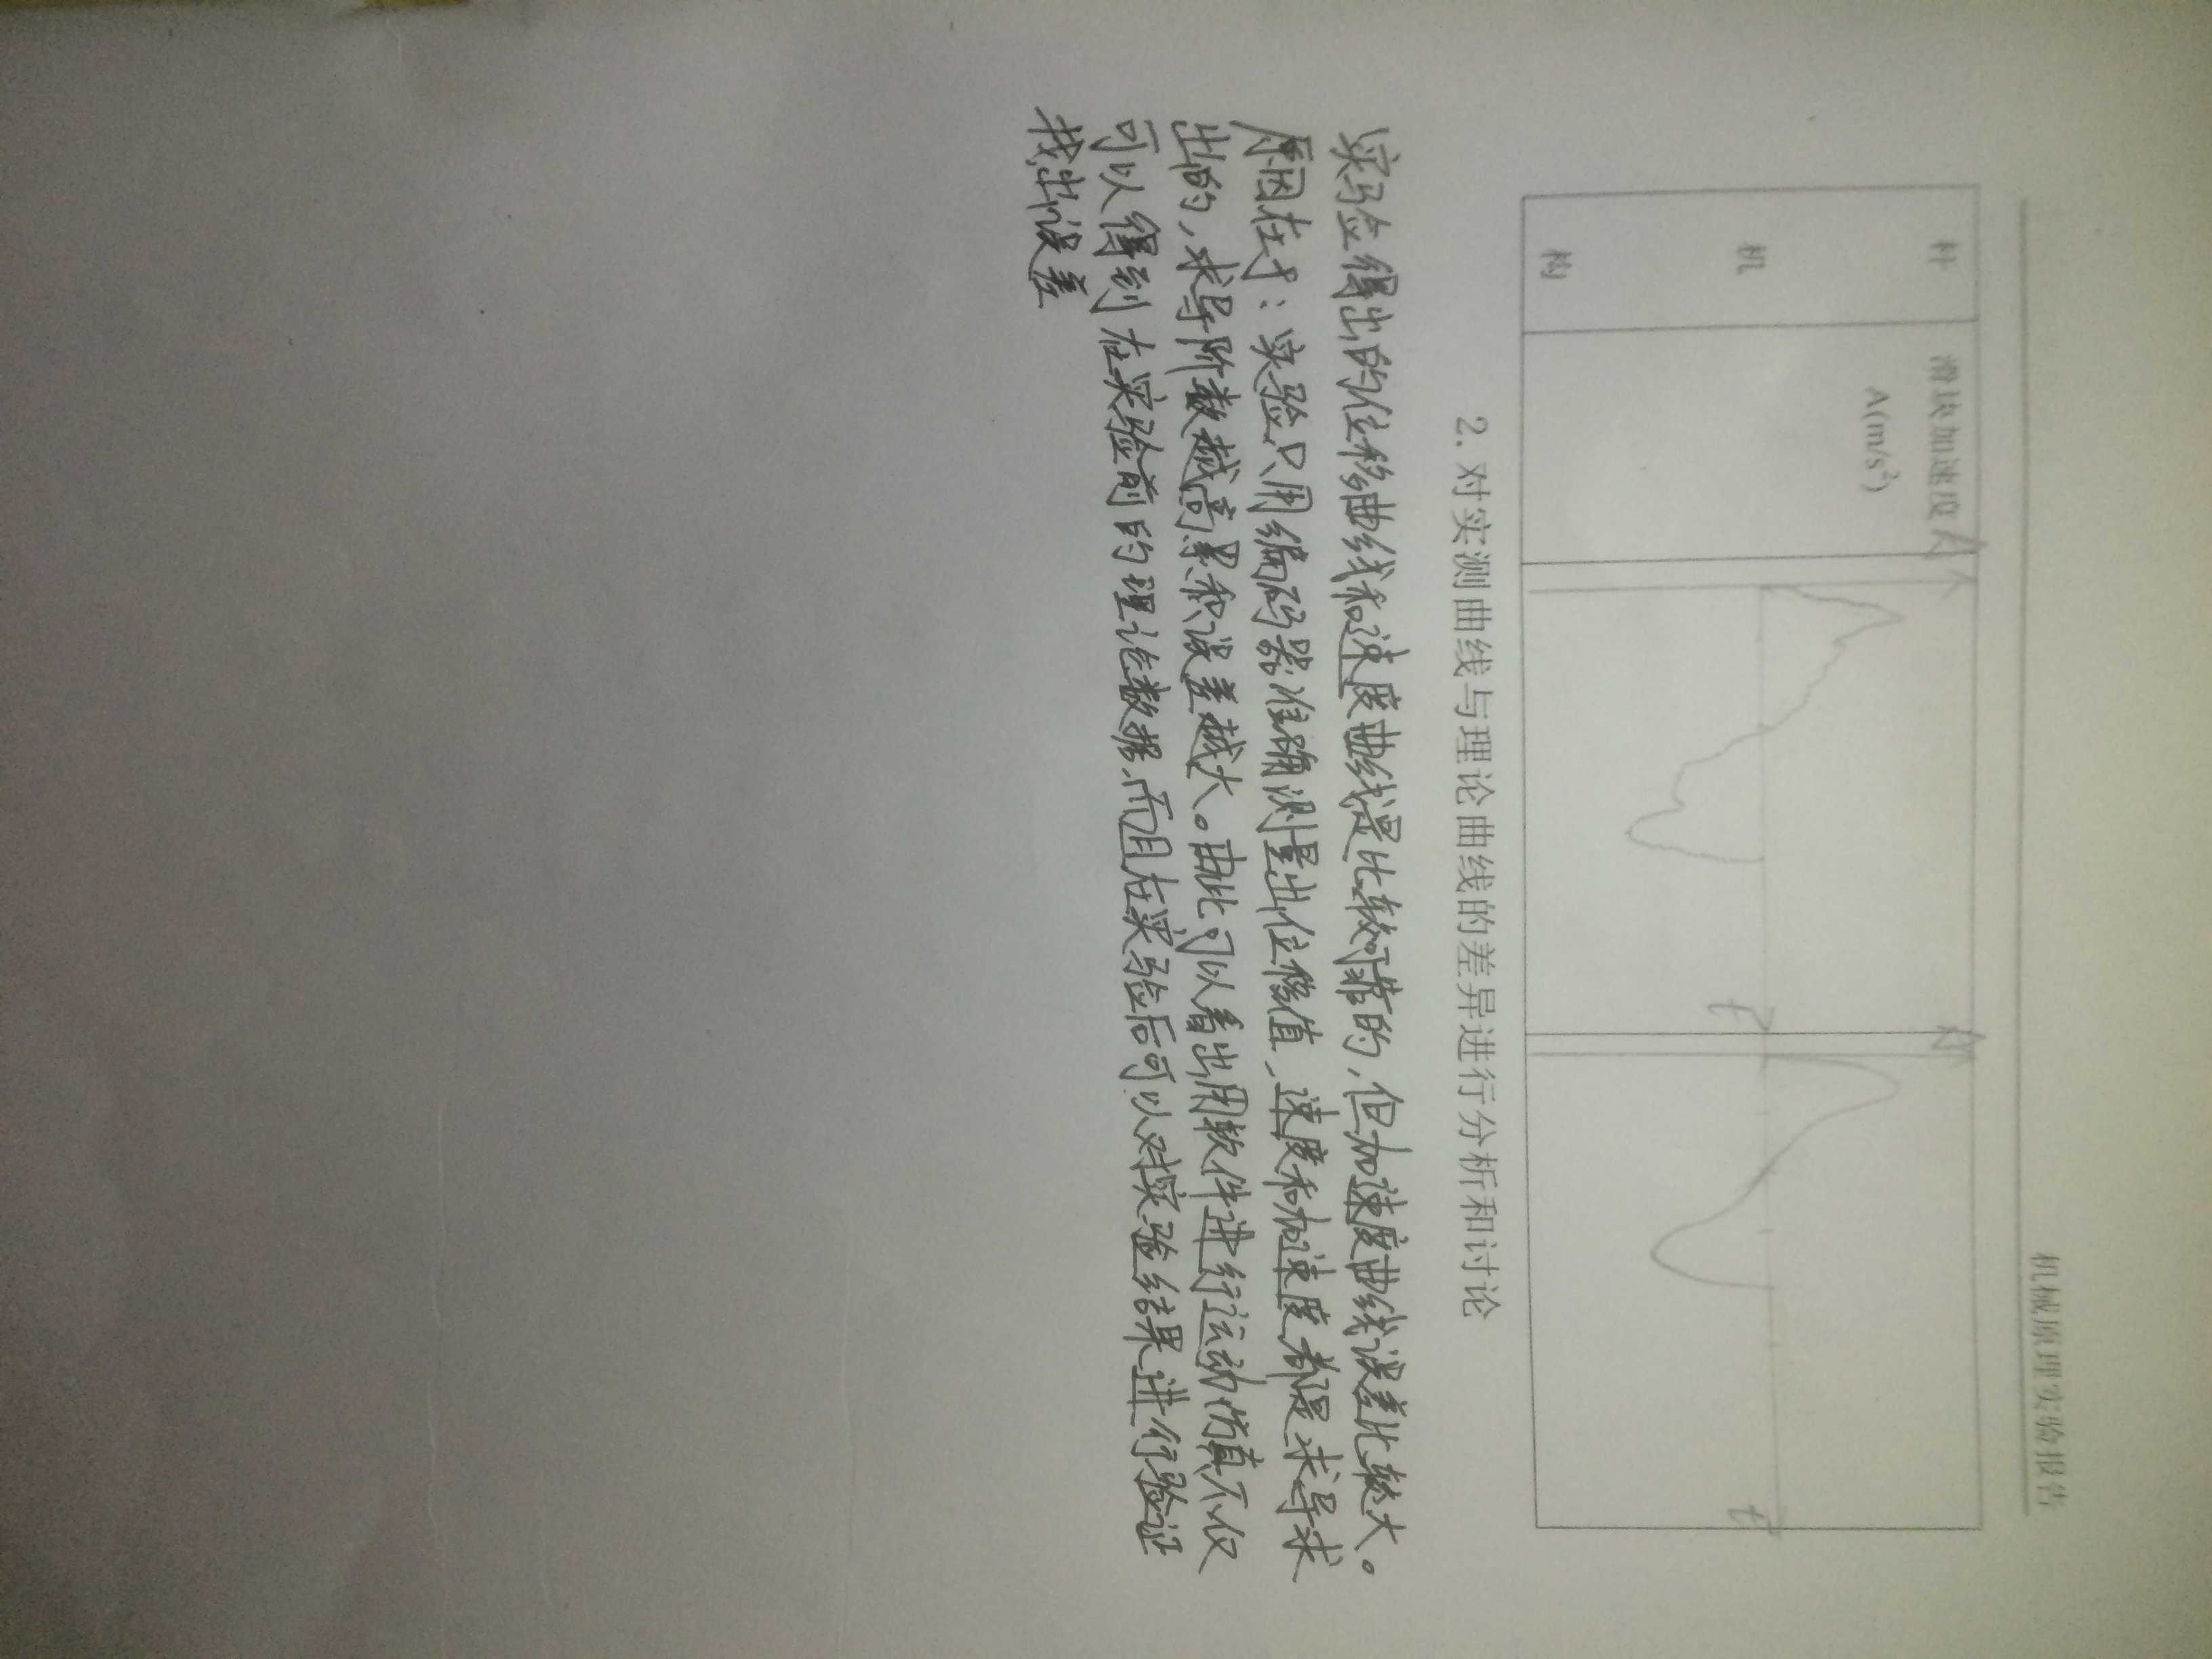 机械原理实验报告
杆
机
构
滑块加速度
A(m/s²)
t
t
2. 对实测曲线与理论曲线的差异进行分析和讨论
实验得出的位移曲线和速度曲线是比较可靠的,但加速度曲线误差比较大。
原因在于:实验只用编码器准确测量出位移值、速度和加速度都是求导求
出的,求导阶数越高累积误差越大。由此可以看出用软件进行运动仿真不仅
可以得到在实验前的理论数据,而且在实验后可以对实验结果进行验证
找出误差